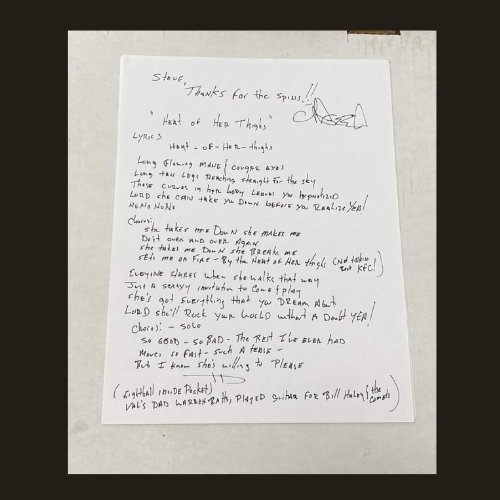 Steve,
Thanks for the spins!!
"Heat of Her Thighs"
Lyrics
Heat-of-Her-thighs
Long Flowing Mane / Cougar Eyes
Long tan legs Reaching straight for the sky
Those curves in her body leave you Hypnotized
Lord she can take you Down before you Realize YEA!
No No No No
Chorus:
she takes me Down she makes me
Do it over and over Again
she takes me Down she Breaks me
sets me on Fire - By the Heat of Her thighs (Not talkin bout KFC!)
when she walks that way
Just a sexy invitation to Come & play
she's got Everything that you Dream About
Lord she'll Rock your World without A Doubt YEA!
Chorus: - Solo
So Good - So Bad - The Best I've Ever Had
Moves so Fast - such A tease -
But I know she's willing to Please
(Eightball inside Pocket)
Val's Dad Warren Batts, Played Guitar For Bill Haley & the Comets)